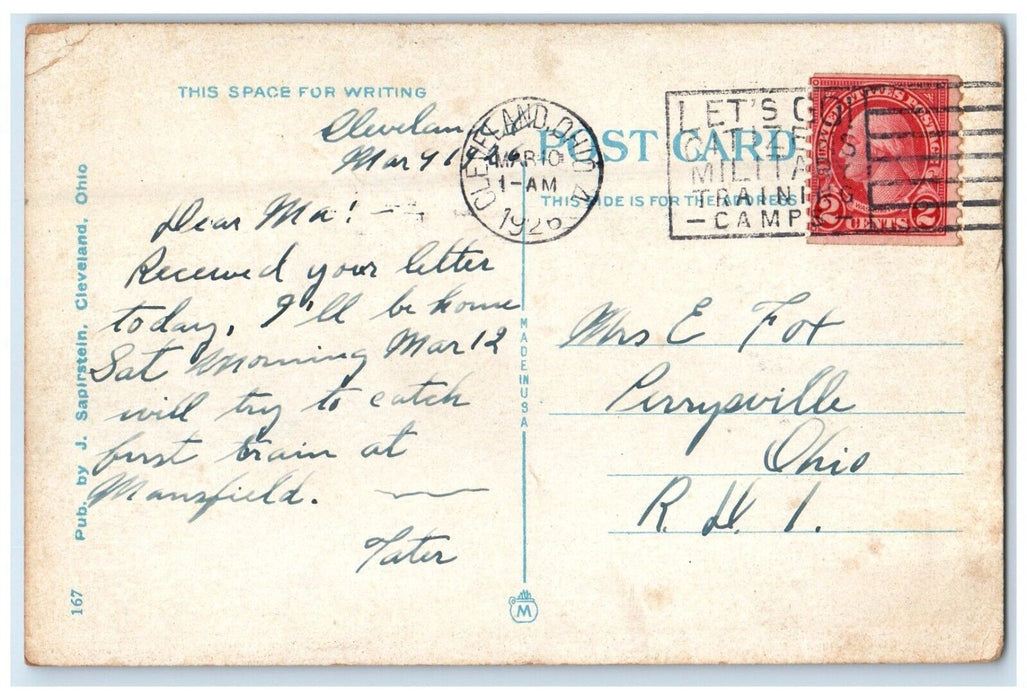 THIS SPACE FOR WRITING
Cleveland
Mar 9 1926
Dear Ma! —
Received your letter
today. I'll be home
Sat Morning Mar 12
will try to catch
first train at
Mansfield.
Tater
Pub. by J. Sapirstein, Cleveland, Ohio
167
MADE IN USA
M
POST CARD
THIS SIDE IS FOR THE ADDRESS
CLEVELAND, OHIO
MAR 10
1-AM
1926
LET'S GO!
CITIZENS
MILITARY
TRAINING
— CAMPS —
2 CENTS 2
Mrs E Fox
Perrysville
Ohio
R. D. 1.